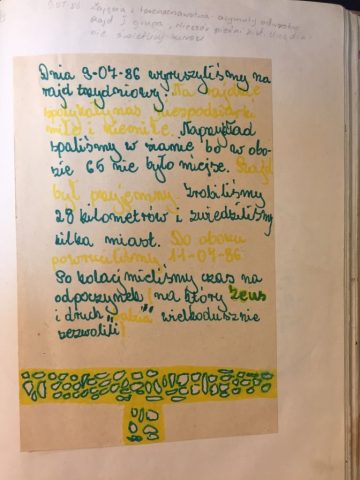 Zajęcia z terenoznawstwa
Rajd I grupa
Dnia 9-07-86 wyruszyliśmy na
rajd trzydniowy. Na rajdzie
spotykały nas niespodzianki
miłe i niemiłe. Naprzykład
spaliśmy w namie bo w obo-
zie 66 nie było miejsc. Rajd
był przyjemny. Zrobiliśmy
28 kilometrów i zwiedziliśmy
kilka miast. Do obozu
powróciliśmy 11-07-86.
Po kolacj mieliśmy czas na
odpoczynek (na który Zeus
i druch " " wielkodusznie
zezwolili)